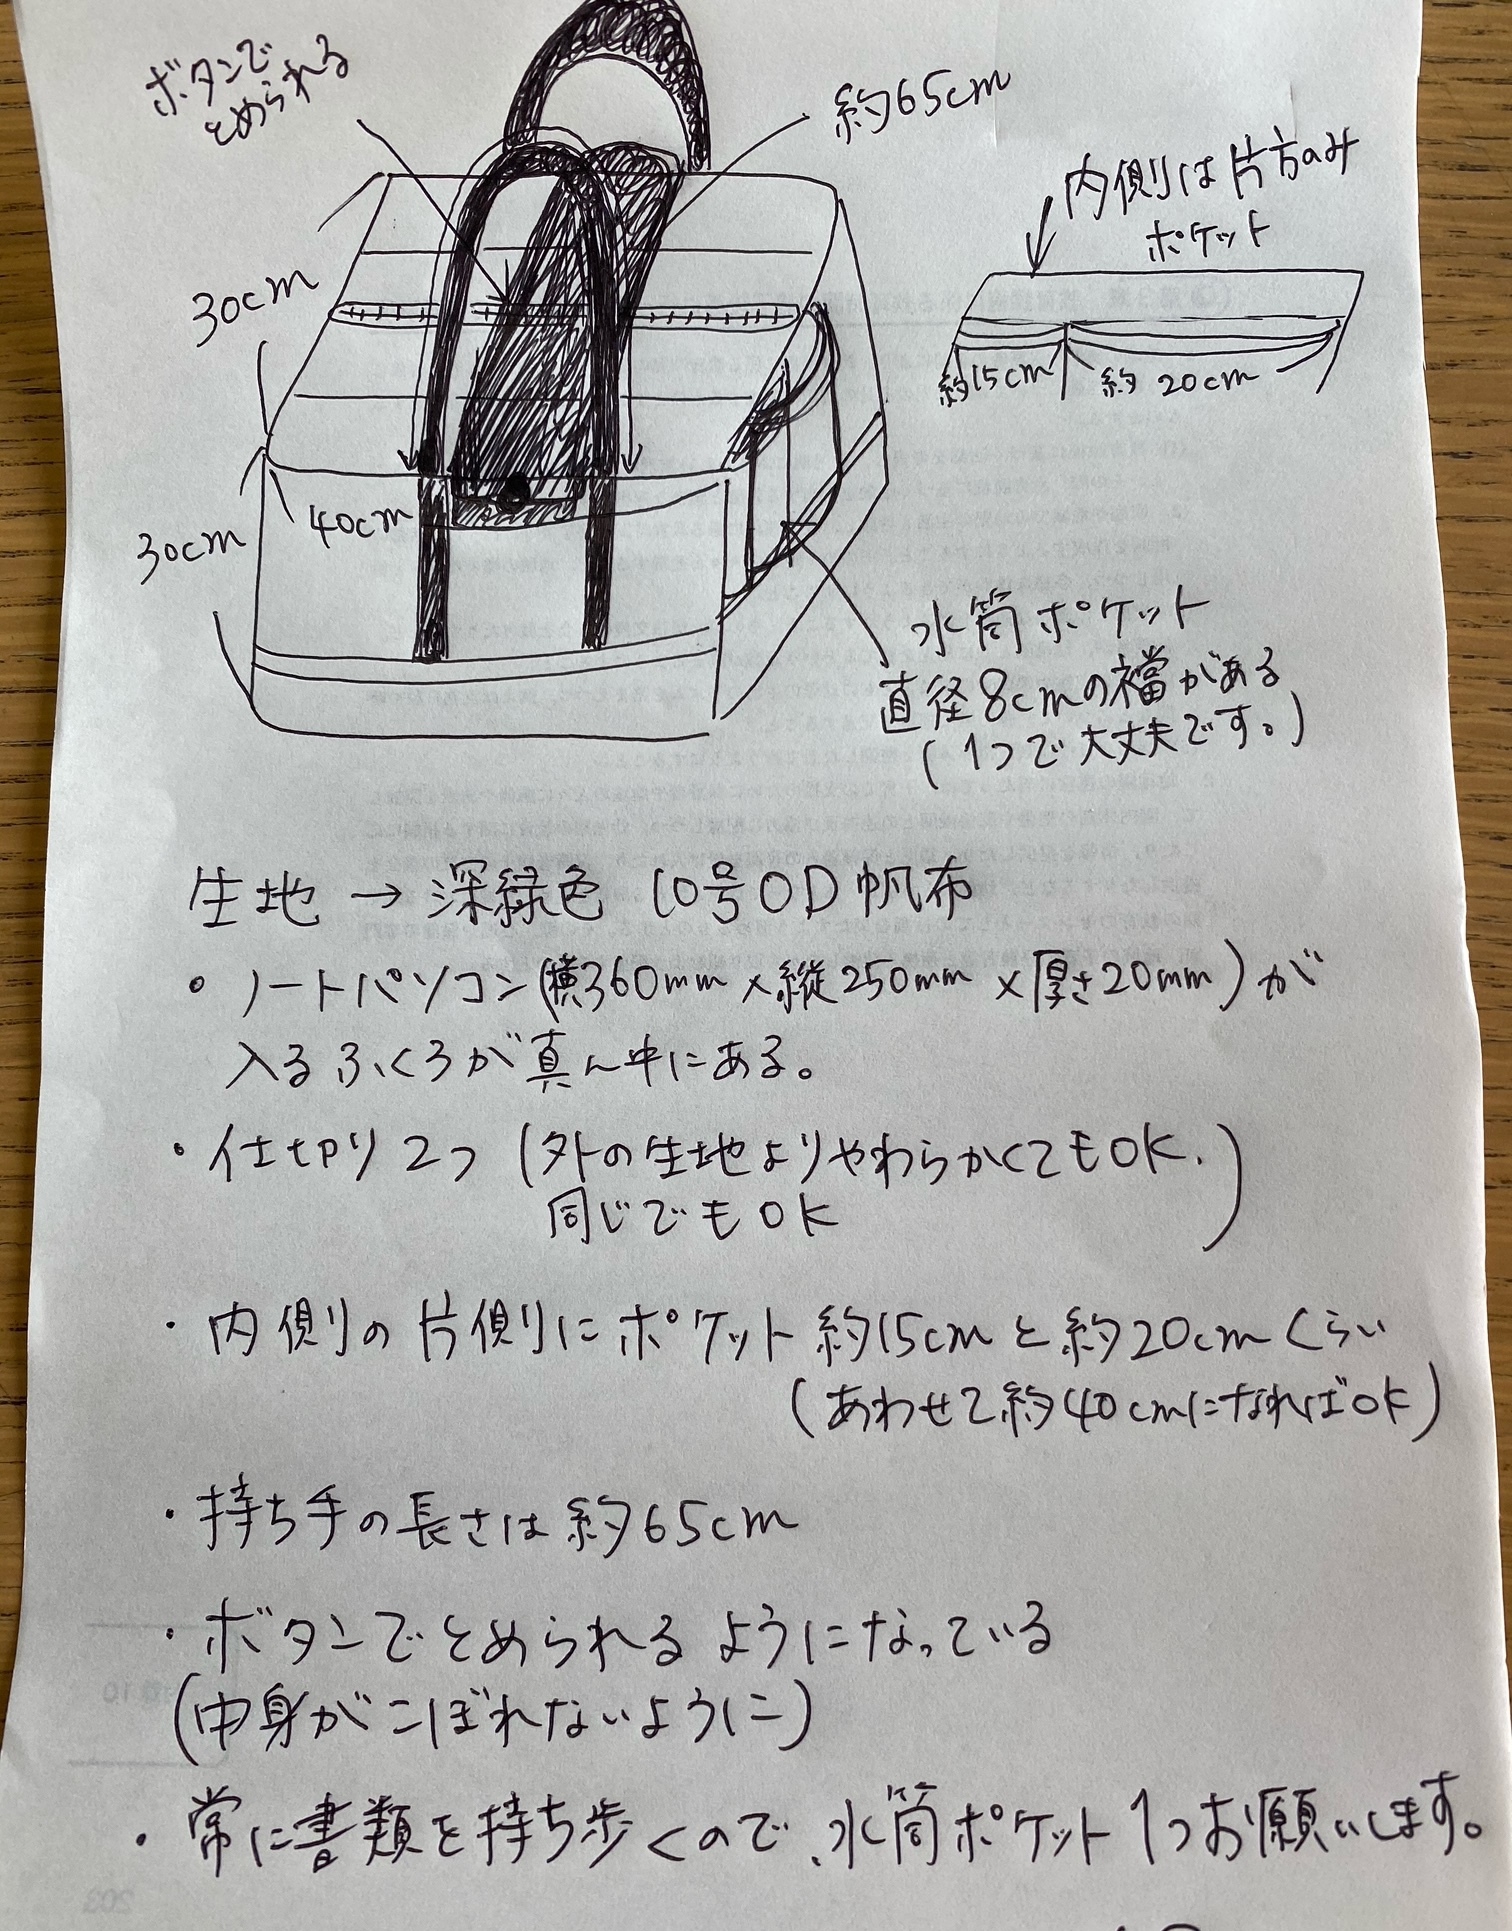 ボタンで
とめられる
約65cm
内側は片方のみ
ポケット
30cm
約15cm
約 20cm
40cm
30cm
水筒ポケット
直径8cmの襠がある
(1つで大丈夫です。)
生地 → 深緑色 10号OD帆布
・ノートパソコン(横360mm×縦250mm×厚さ20mm)が
入るふくろが真ん中にある。
・仕切り2つ (外の生地よりやわらかくてもOK.
同じでもOK)
・内側の片側にポケット 約15cmと約20cmくらい
(あわせて約40cmになればOK)
・持ち手の長さは約65cm
・ボタンでとめられるようになっている
(中身がこぼれないように)
・常に書類を持ち歩くので、水筒ポケット1つお願いします。